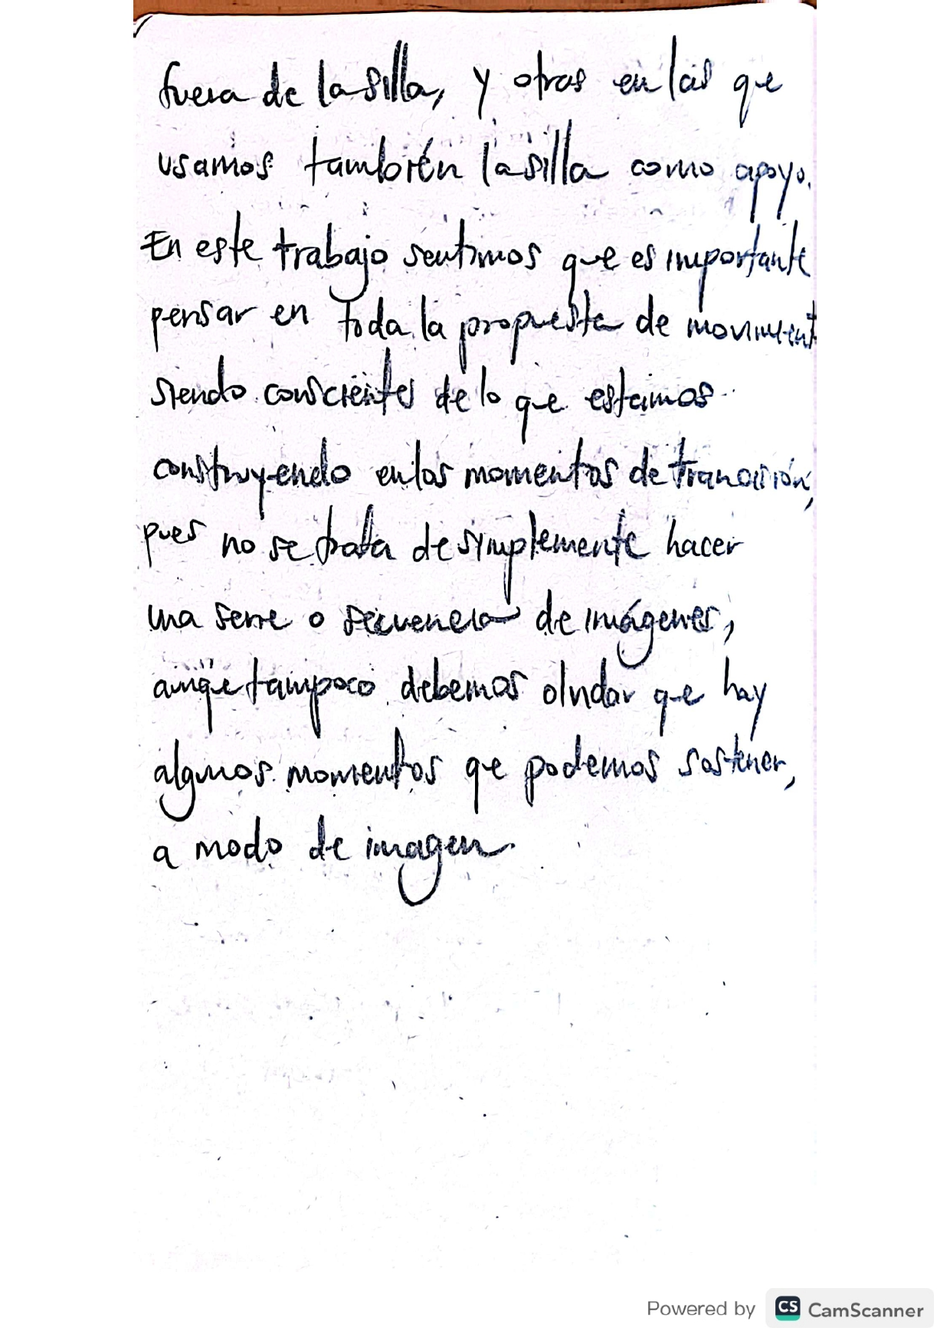 fuera de la silla, y otras en las que
usamos también la silla como apoyo.
En este trabajo sentimos que es importante
pensar en toda la propuesta de movimient
siendo conscientes de lo que estamos
construyendo en los momentos de transición,
pues no se trata de simplemente hacer
una serie o secuencia de imágenes,
aunque tampoco debemos olvidar que hay
algunos momentos que podemos sostener,
a modo de imagen.
Powered by CS CamScanner